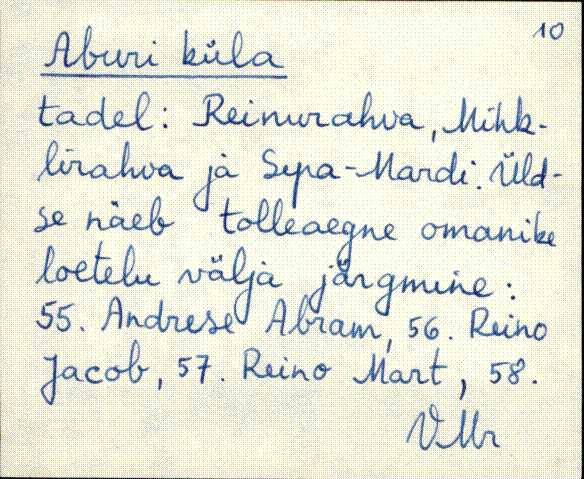 10
Aburi küla
tadel: Reinurahva, Mihk-
lirahva ja Sepa-Mardi. Üld-
se näeb tolleaegne omanike
loetelu välja järgmine:
55. Andrese Abram, 56. Reino
Jacob, 57. Reino Mart, 58.
VMr